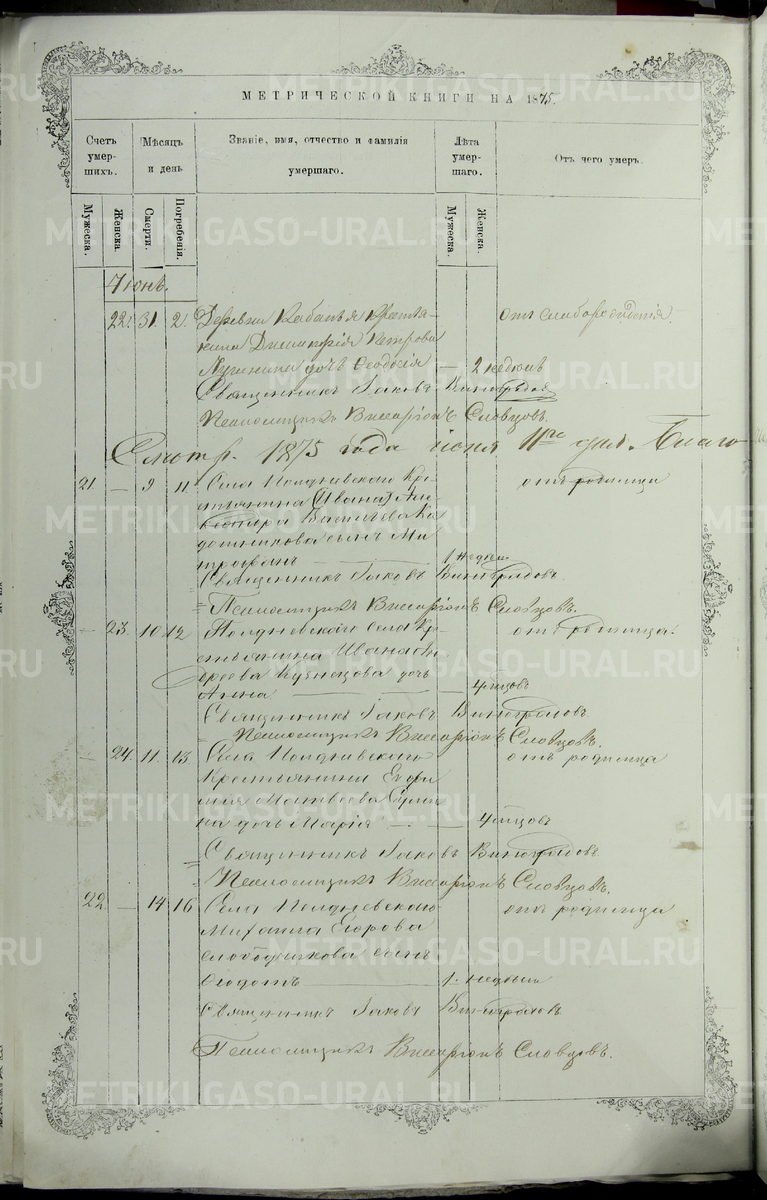 МЕТРИЧЕСКОЙ КНИГИ НА 1875.
Счетъ умер- шихъ.
Мѣсяцъ и день
Званіе, имя, отчество и фамилія умершаго.
Лѣта умер- шаго.
Отъ чего умеръ.
Мужеска.
Женска.
Смерти.
Погребенія.
Мужеска.
Женска.
Іюнь.
22. 31. 2. Деревни Кабанья крестья- отъ слаборожденія
нина Димитрія Петрова
дочь Ѳеодосія — 2 недѣль
Священникъ Іаковъ Виноградовъ
Псаломщикъ Виссаріонъ Словцовъ.
Смотр. 1875 года іюня 11го дня. Благо
21. — 9 11. Села Полдневскаго Кре- отъ родимца
стьянина (Ивана)
Васильева
сынъ Ми
трофанъ — 1 недѣли
Священникъ Іаковъ Виноградовъ.
Псаломщикъ Виссаріонъ Словцовъ.
— 23. 10 12 Полдневскаго села Кре- отъ родимца.
стьянина Ивана
Кузнецова дочь
Анна — 4 мѣсцовъ
Священникъ Іаковъ Виноградовъ.
Псаломщикъ Виссаріонъ Словцовъ.
— 24. 11. 13. Села Полдневскаго отъ родимца
Крестьянина
Матвеева
дочь Марія — 4 мѣсцовъ
Священникъ Іаковъ Виноградовъ.
Псаломщикъ Виссаріонъ Словцовъ.
22 — 14 16 Села Полдневскаго отъ родимца
Михаила Егорова
сынъ
Ѳеодотъ — 1. недѣли
Священникъ Іаковъ Виноградовъ
Псаломщикъ Виссаріонъ Словцовъ.
METRIKI.GASO-URAL.RU